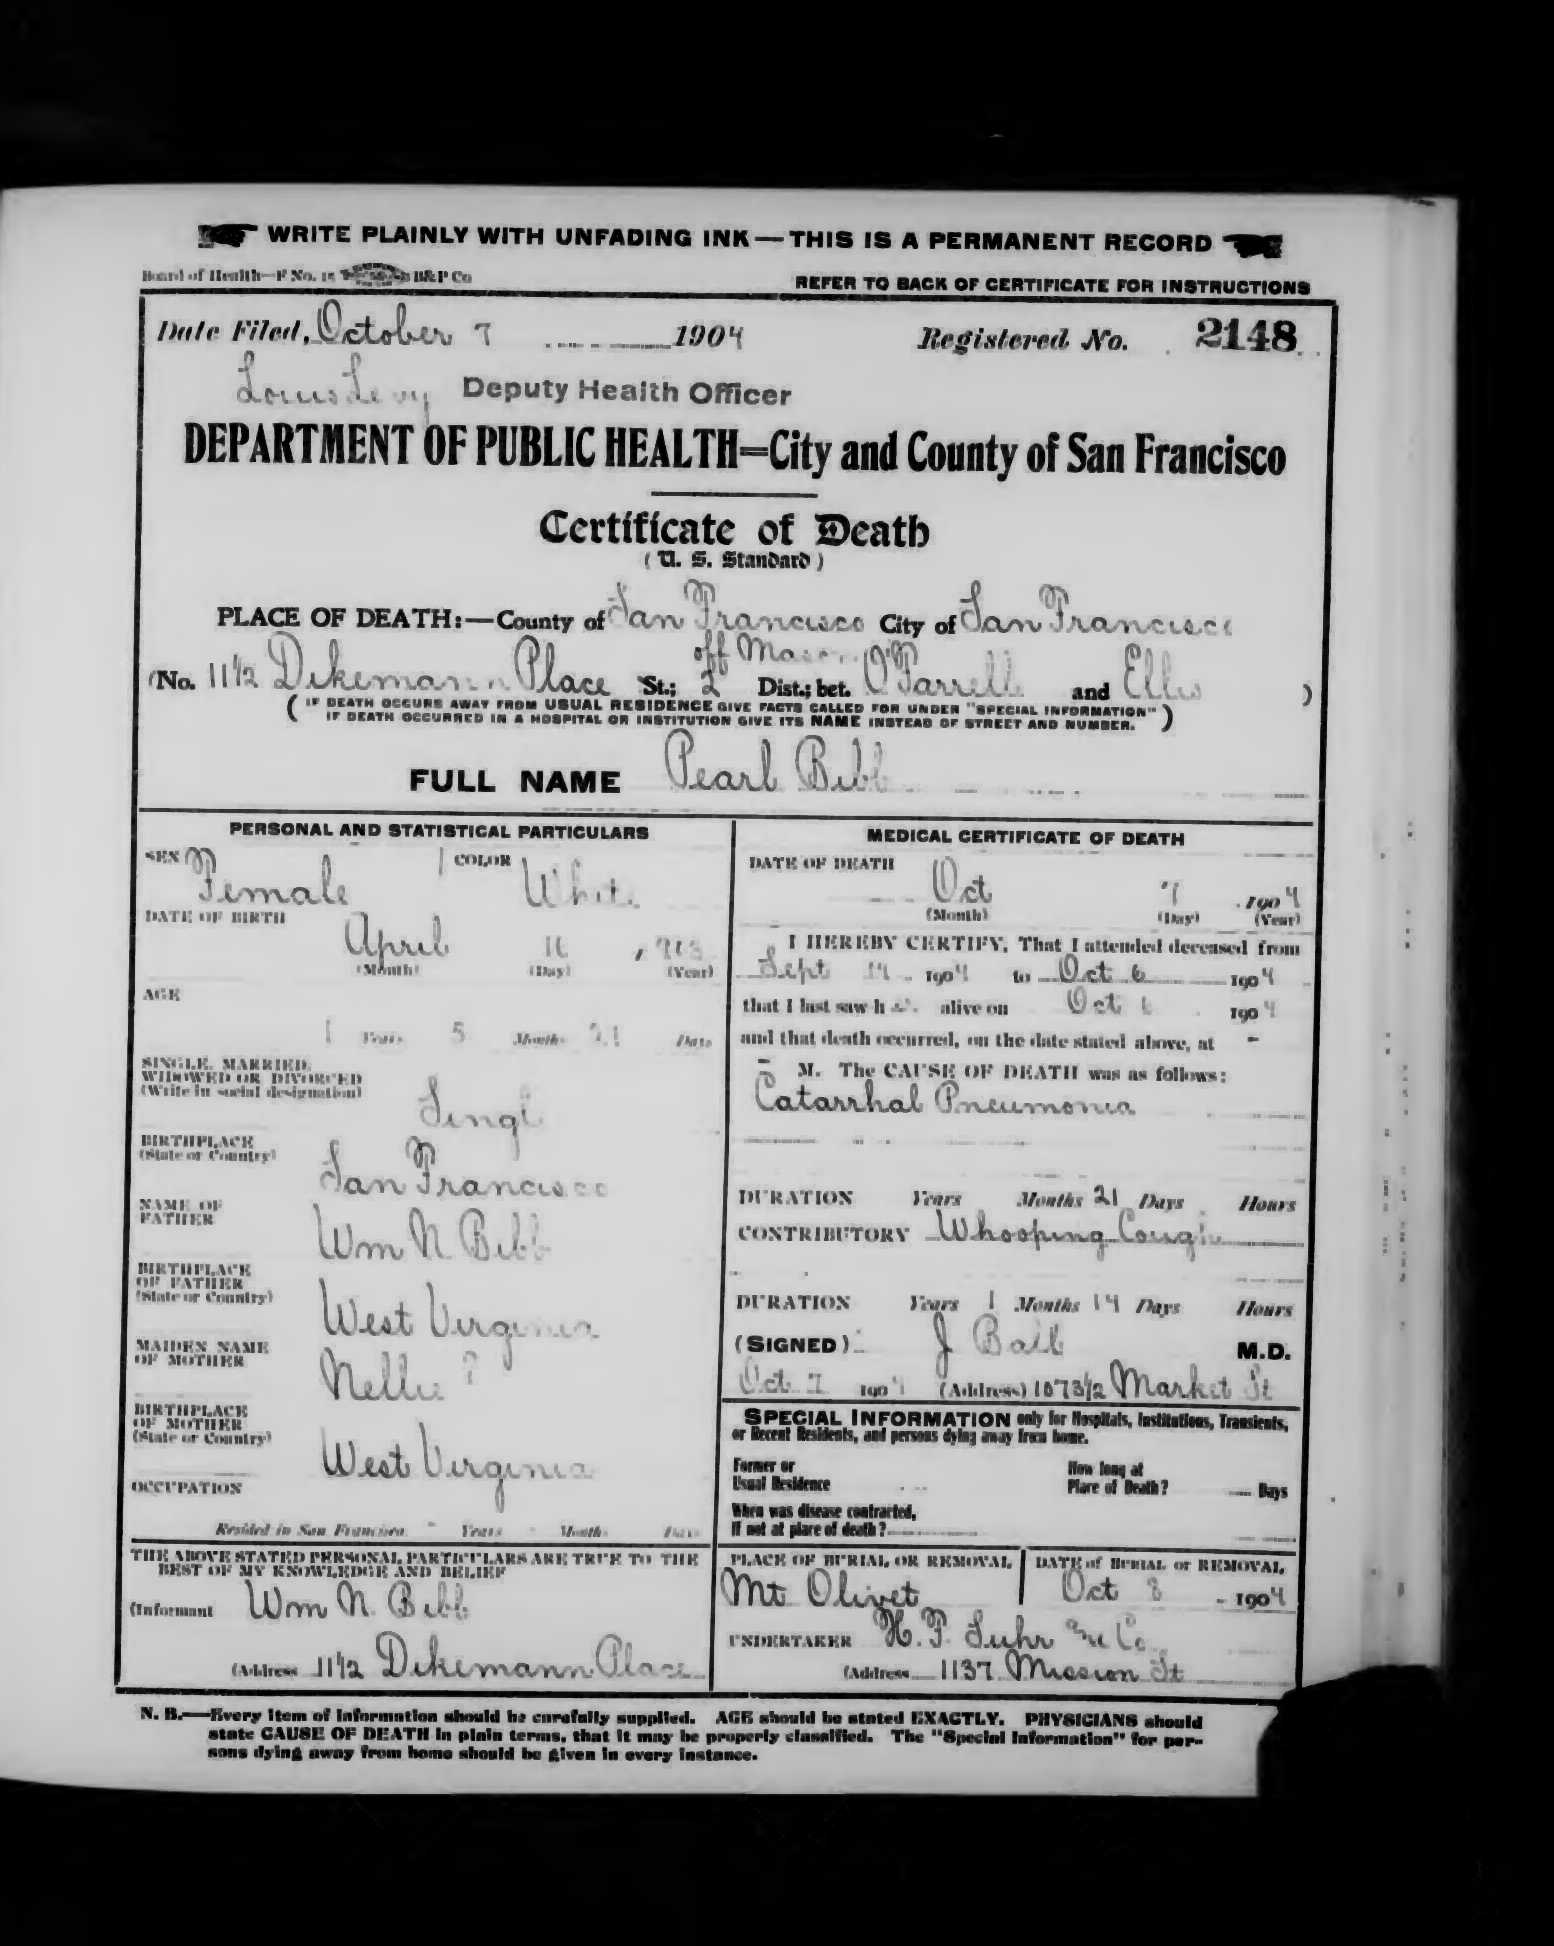 WRITE PLAINLY WITH UNFADING INK—THIS IS A PERMANENT RECORD
Board of Health—F No. 15 B&P Co
REFER TO BACK OF CERTIFICATE FOR INSTRUCTIONS
Date Filed, October 7 1904 Registered No. 2148
Louis Levy Deputy Health Officer
DEPARTMENT OF PUBLIC HEALTH=City and County of San Francisco
Certificate of Death
(U. S. Standard)
PLACE OF DEATH:—County of San Francisco City of San Francisco
off
(No. 11½ Dikemann Place St.; 2 Dist.; bet. O'Farrell and Ellis )
(IF DEATH OCCURS AWAY FROM USUAL RESIDENCE GIVE FACTS CALLED FOR UNDER "SPECIAL INFORMATION"
IF DEATH OCCURRED IN A HOSPITAL OR INSTITUTION GIVE ITS NAME INSTEAD OF STREET AND NUMBER.)
FULL NAME Pearl Bibb
PERSONAL AND STATISTICAL PARTICULARS
SEX Female COLOR White
DATE OF BIRTH
April 16
(Month) (Day) (Year)
AGE
1 Years 5 Months 21 Days
SINGLE, MARRIED,
WIDOWED OR DIVORCED
(Write in social designation)
Single
BIRTHPLACE
(State or Country)
San Francisco
NAME OF
FATHER
Wm N Bibb
BIRTHPLACE
OF FATHER
(State or Country)
West Virginia
MAIDEN NAME
OF MOTHER
Nellie ?
BIRTHPLACE
OF MOTHER
(State or Country)
West Virginia
OCCUPATION
Resided in San Francisco - Years - Months Days
THE ABOVE STATED PERSONAL PARTICULARS ARE TRUE TO THE
BEST OF MY KNOWLEDGE AND BELIEF
(Informant Wm N. Bibb
(Address 11½ Dikemann Place
MEDICAL CERTIFICATE OF DEATH
DATE OF DEATH
Oct 7 1904
(Month) (Day) (Year)
I HEREBY CERTIFY, That I attended deceased from
Sept 14 1904 to Oct 6 1904
that I last saw h alive on Oct 6 1904
and that death occurred, on the date stated above, at -
- M. The CAUSE OF DEATH was as follows:
Catarrhal Pneumonia
DURATION Years Months 21 Days Hours
CONTRIBUTORY Whooping Cough
DURATION Years 1 Months 14 Days Hours
(SIGNED) J Ball M.D.
Oct 7 1904 (Address) 1073½ Market St
SPECIAL INFORMATION only for Hospitals, Institutions, Transients,
or Recent Residents, and persons dying away from home.
Former or
Usual Residence
How long at
Place of Death? Days
When was disease contracted,
If not at place of death?
PLACE OF BURIAL OR REMOVAL
Mt Olivet
DATE of BURIAL or REMOVAL
Oct 8 1904
UNDERTAKER H. F. Suhr & Co.
(Address 1137 Mission St
N. B.—Every item of information should be carefully supplied. AGE should be stated EXACTLY. PHYSICIANS should
state CAUSE OF DEATH in plain terms, that it may be properly classified. The "Special Information" for per-
sons dying away from home should be given in every instance.